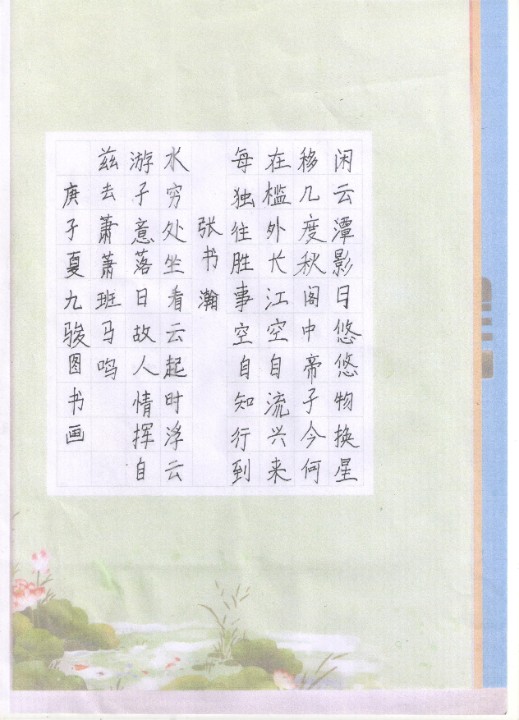 闲云潭影日悠悠物换星
移几度秋阁中帝子今何
在槛外长江空自流兴来
每独往胜事空自知行到
张书瀚
水穷处坐看云起时浮云
游子意落日故人情挥自
兹去萧萧班马鸣
庚子夏九骏图书画